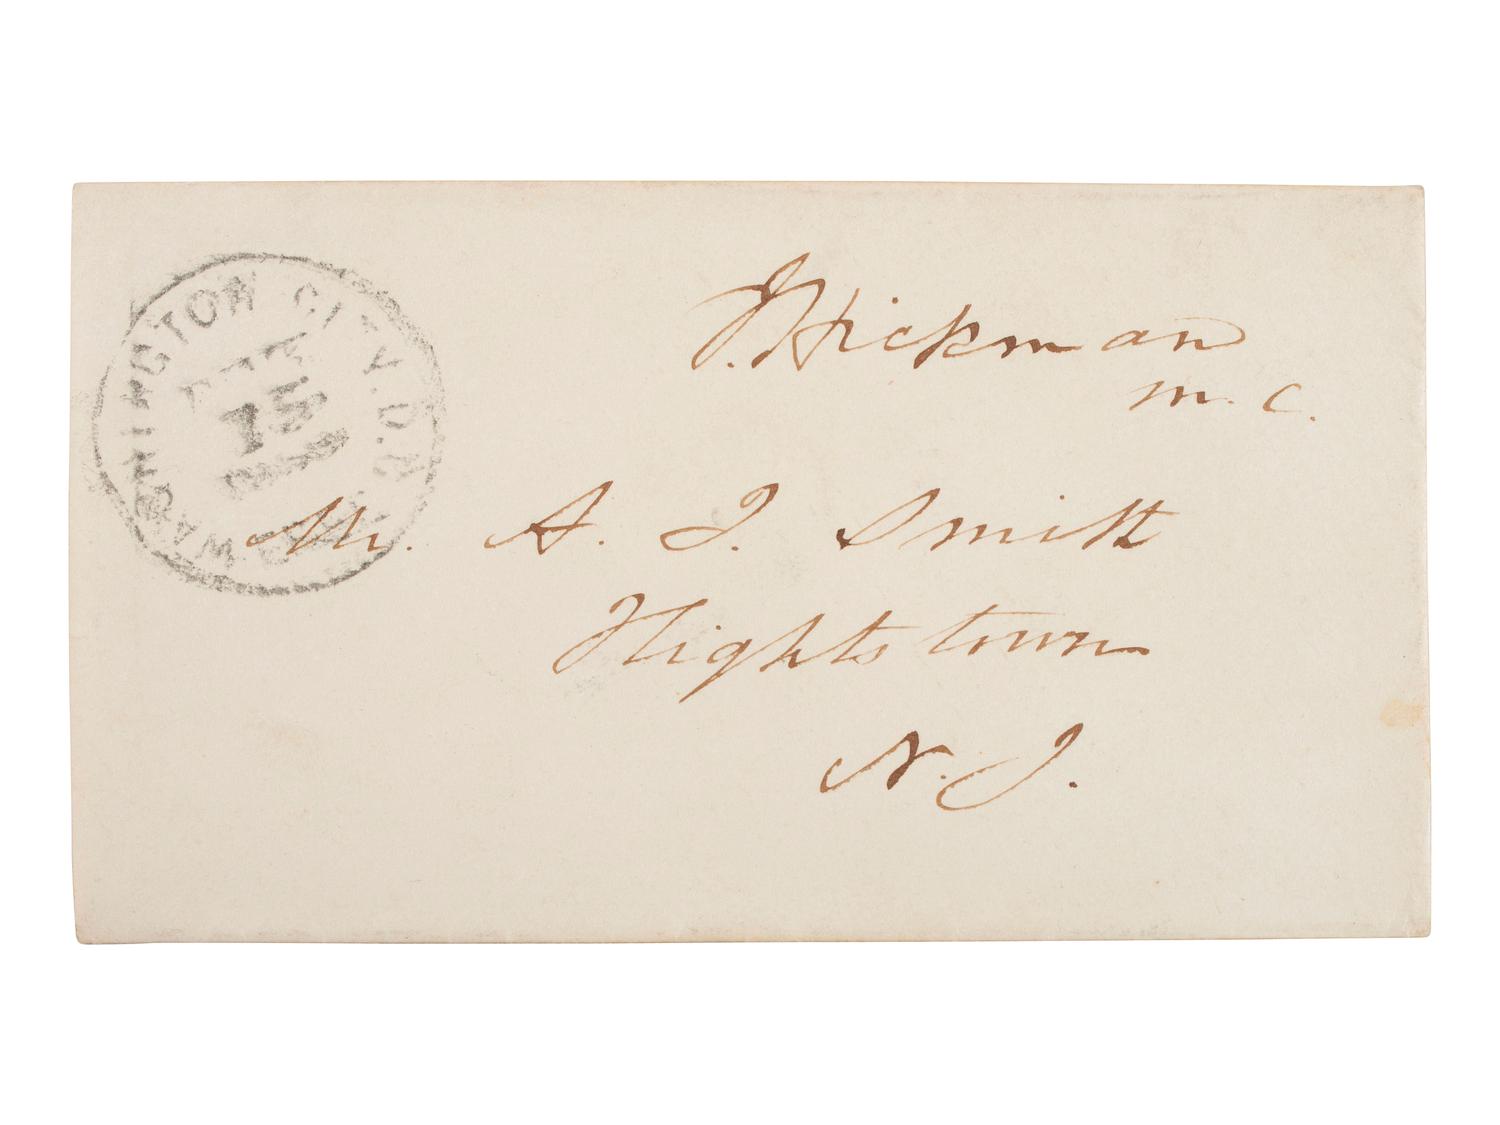 WASHINGTON CITY. D.C.
15
J. Hickman
M. C.
Mr. A. J. Smith
Hightstown
N. J.